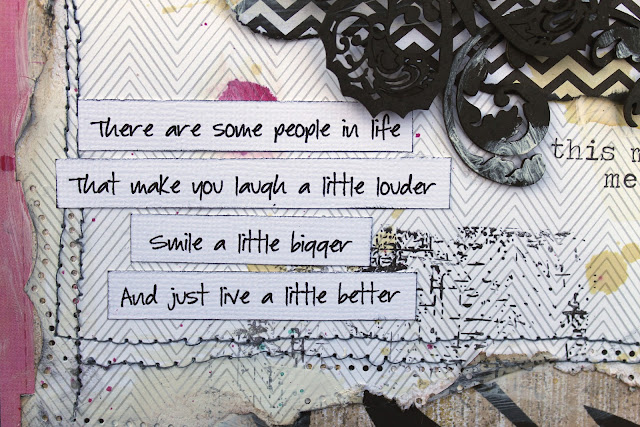 There are some people in life
That make you laugh a little louder
Smile a little bigger
And just live a little better
this m
me